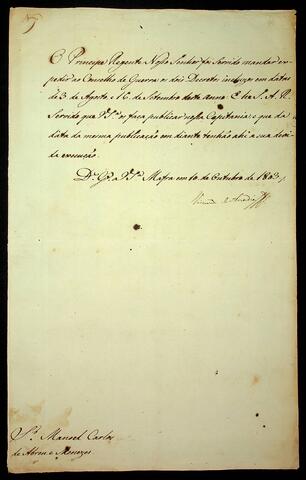 O Principe Regente Nosso Senhor foi Servido mandar ex-
pedir ao Concelho de Guerra os dois Decretos incluzos em datas
de 3 de Agosto, e 16 de Setembro deste anno. E he S. A. R.
Servido que V. S.ª os faça publicar nessa Capitania: e que da
data da mesma publicação em diante tenhão ahi a sua devi-
da execução.
D.s G.e a V. S.ª Mafra em 10 de Outubro de 1803.
Visconde d'Anadia
S.r Manoel Carlos
de Abreu e Menezes